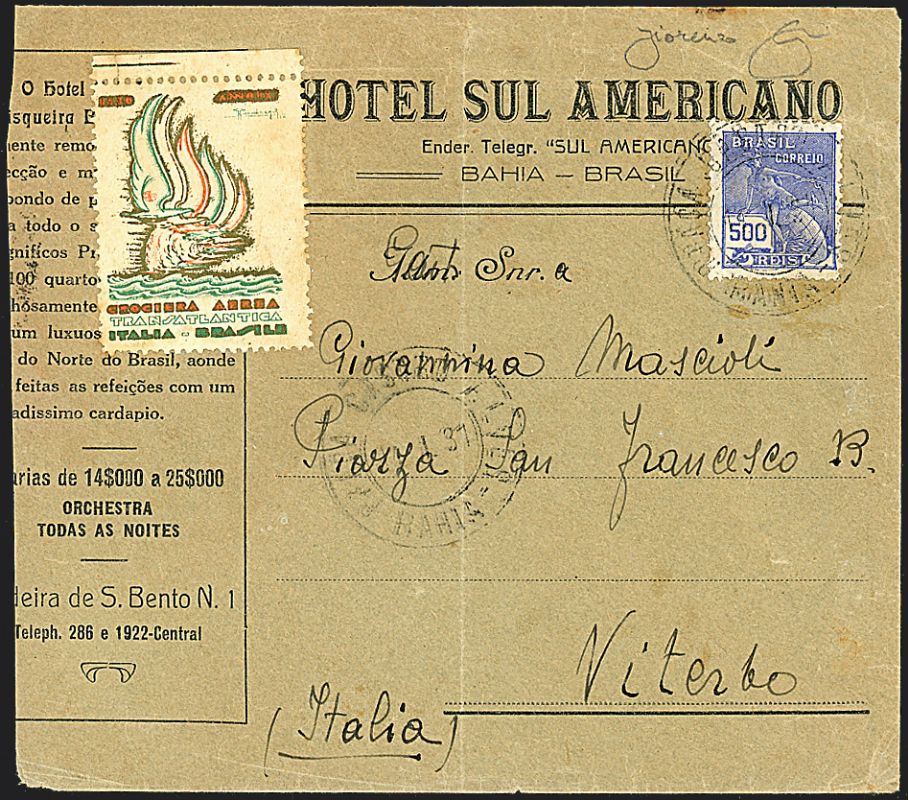 HOTEL SUL AMERICANO
Ender. Telegr. "SUL AMERICANO
BAHIA – BRASIL
O Hotel
isqueira P
mente remo
ecção e m
bondo de p
a todo o s
gnificos Pr
100 quartos
lhosamente
um luxuos
do Norte do Brasil, aonde
feitas as refeições com um
adissimo cardapio.
arias de 14$000 a 25$000
ORCHESTRA
TODAS AS NOITES
deira de S. Bento N. 1
Teleph. 286 e 1922-Central
CROCIERA AEREA
TRANSATLANTICA
ITALIA - BRASILE
BRASIL
CORREIO
500
REIS
Snr.a
Giovannina Mascioli
Piazza San Francesco B.
Viterbo
(Italia)
31
BAHIA